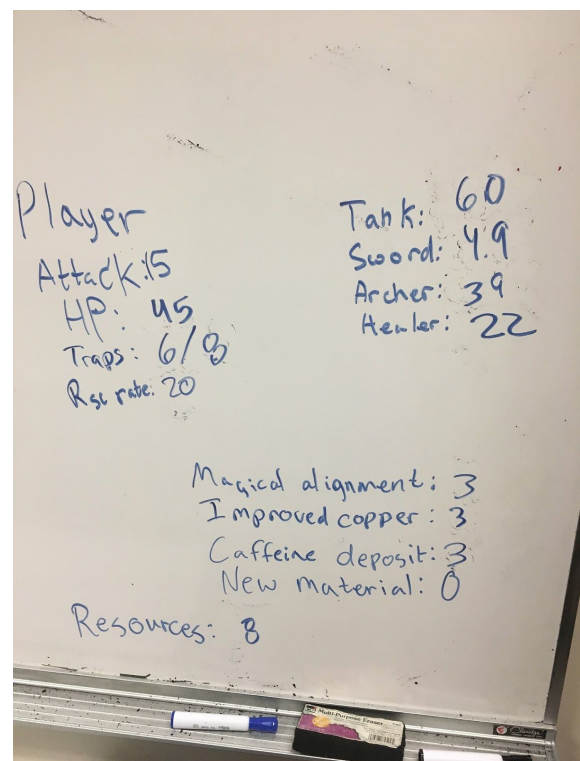 Player
Attack: 15
HP: 45
Traps: 6/8
Rsc rate: 20
Tank: 60
Sword: 49
Archer: 39
Healer: 22
Magical alignment: 3
Improved copper: 3
Caffeine deposit: 3
New material: 0
Resources: 8
Multi-Purpose Eraser